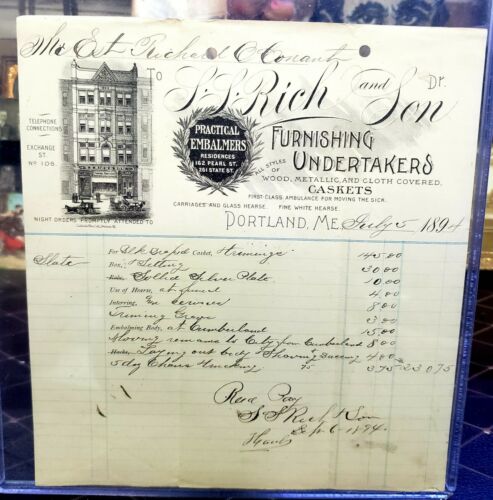 The Est Richard C Conant
To S. S. Rich and Son Dr.
TELEPHONE
CONNECTIONS
EXCHANGE
ST.
No 106.
PRACTICAL
EMBALMERS
RESIDENCES
162 PEARL ST.
261 STATE ST.
FURNISHING
UNDERTAKERS
ALL STYLES OF
WOOD, METALLIC, AND CLOTH COVERED,
CASKETS
FIRST-CLASS AMBULANCE FOR MOVING THE SICK.
CARRIAGES AND GLASS HEARSE. FINE WHITE HEARSE.
NIGHT ORDERS PROMPTLY ATTENDED TO
PORTLAND, ME. July 5 1894
State For Casket, Trimings 145.00
Box, & Setting 30.00
Robe, Sollid Silver Plate 10.00
Use of Hearse, at 4.00
Interring, services 8.00
Triming Grave 3.00
Embalming Body, at Cumberland 15.00
Moving remains to City from Cumberland 8.00
Hacks, Laying out body & Shaving 4.00
5 dz Chairs 75 3.75 230.75
Recd Pay
S. S. Rich & Son
Sept 6 1894